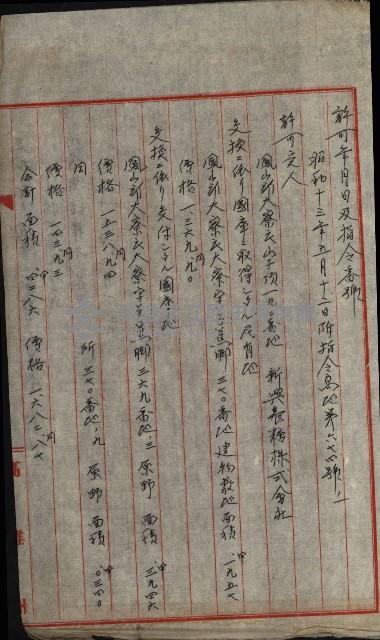 許可年月日及指令番號
昭和十三年五月十三日附指令高地第六七四號ノ一
許可ノ人
鳳山郡大寮庄山子頂一九〇番地 新興製糖株式會社
交換ニ依リ國庫ニ取得シタル民有地
鳳山郡大寮庄大寮字 脚三七〇番地 建物敷地 面積 甲 〇.一九五七
價格 一三六九円九〇
交換ニ依リ交付シタル國庫地
鳳山郡大寮庄大寮字 脚三六九番地ノ三 原野 面積 甲 〇.三九四六
價格 一五三八円九四
同 所 三七〇番地ノ九 原野 面積 甲 〇.〇三四〇
價格 一四三円九三
合計 面積 甲 〇.四二八六 價格 一.六八二円八七
高雄州